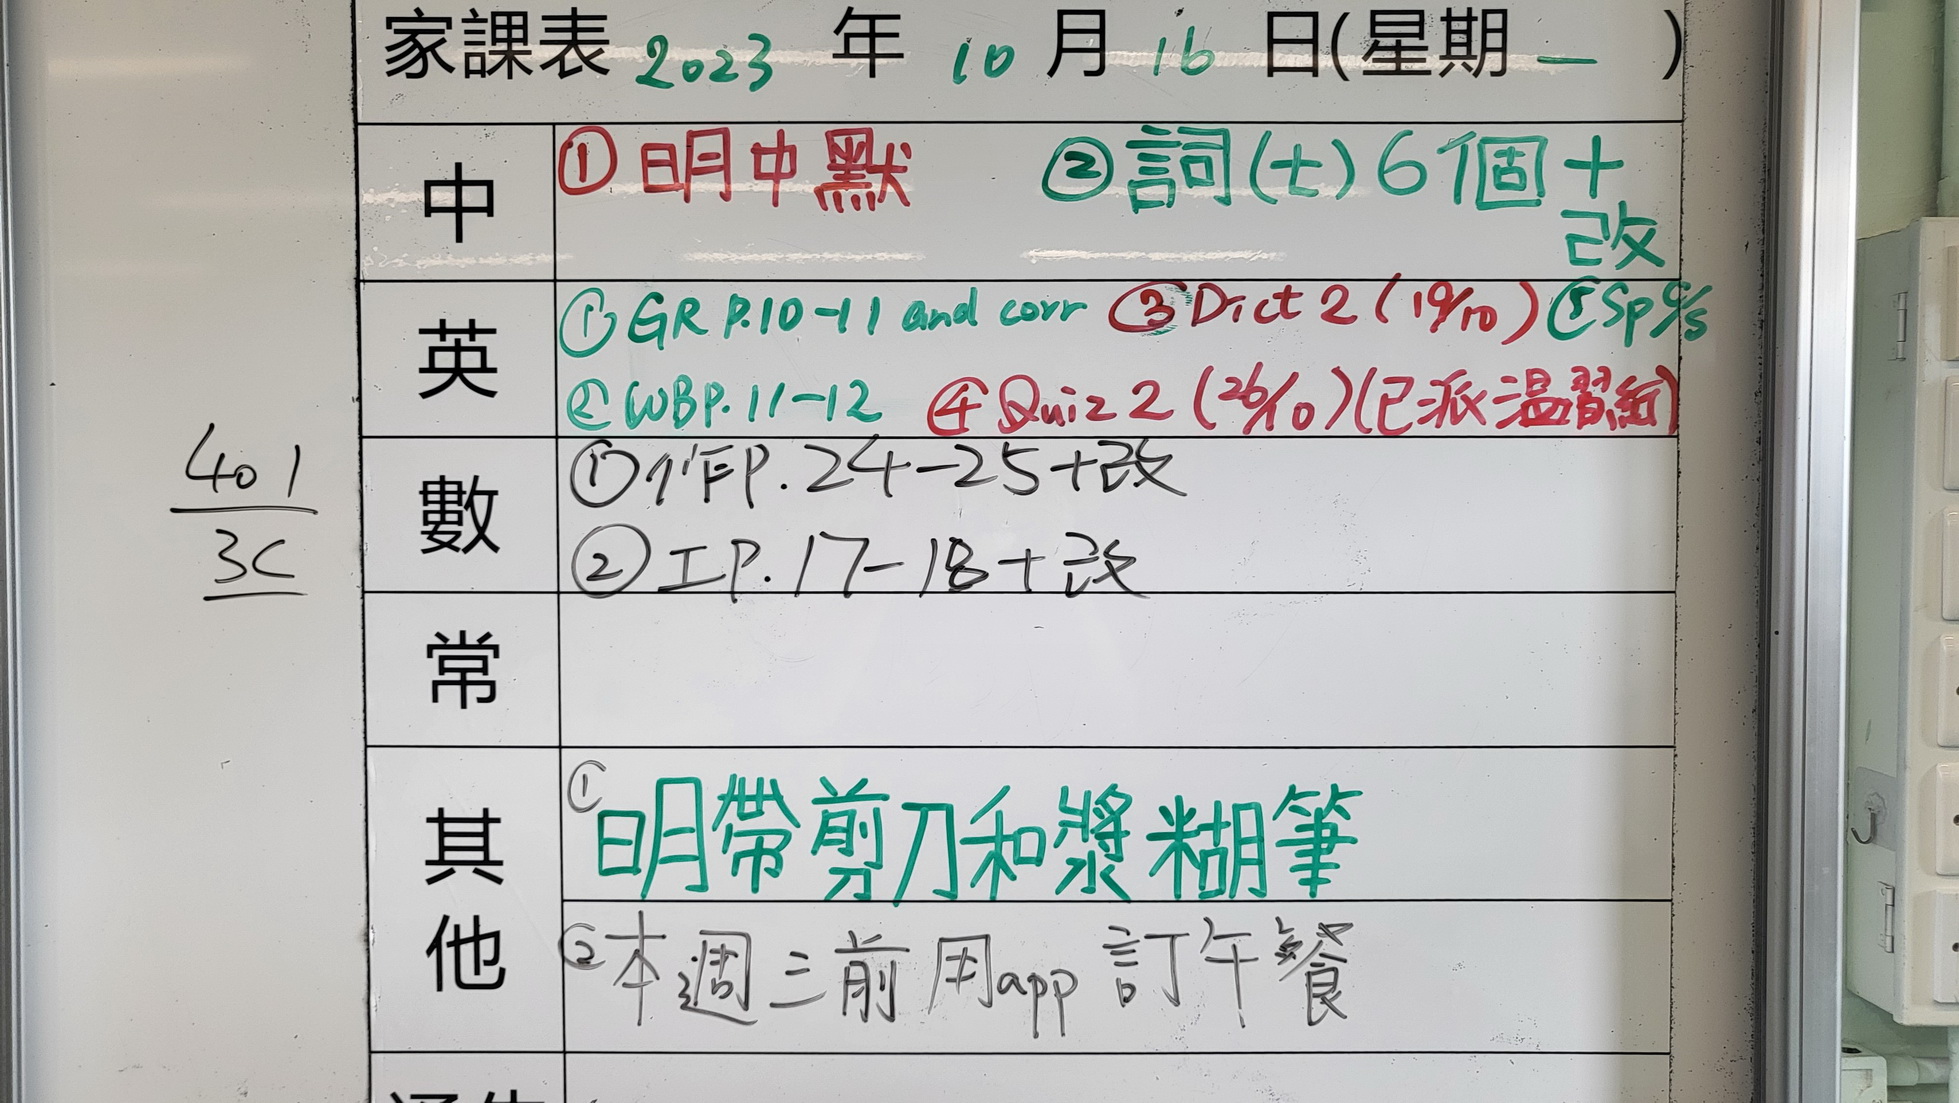 家課表 2023 年 10 月 16 日(星期一)
中
①明中默 ②詞(七)6個+
改
英
①GR P.10-11 and corr ③Dict 2 (19/10) ⑤Sp C/S
②WB P.11-12 ④Quiz 2 (26/10)(已派温習紙)
數
①作P.24-25+改
②工P.17-18+改
401
3C
常
其他
①明帶剪刀和漿糊筆
②本週三前用app訂午餐